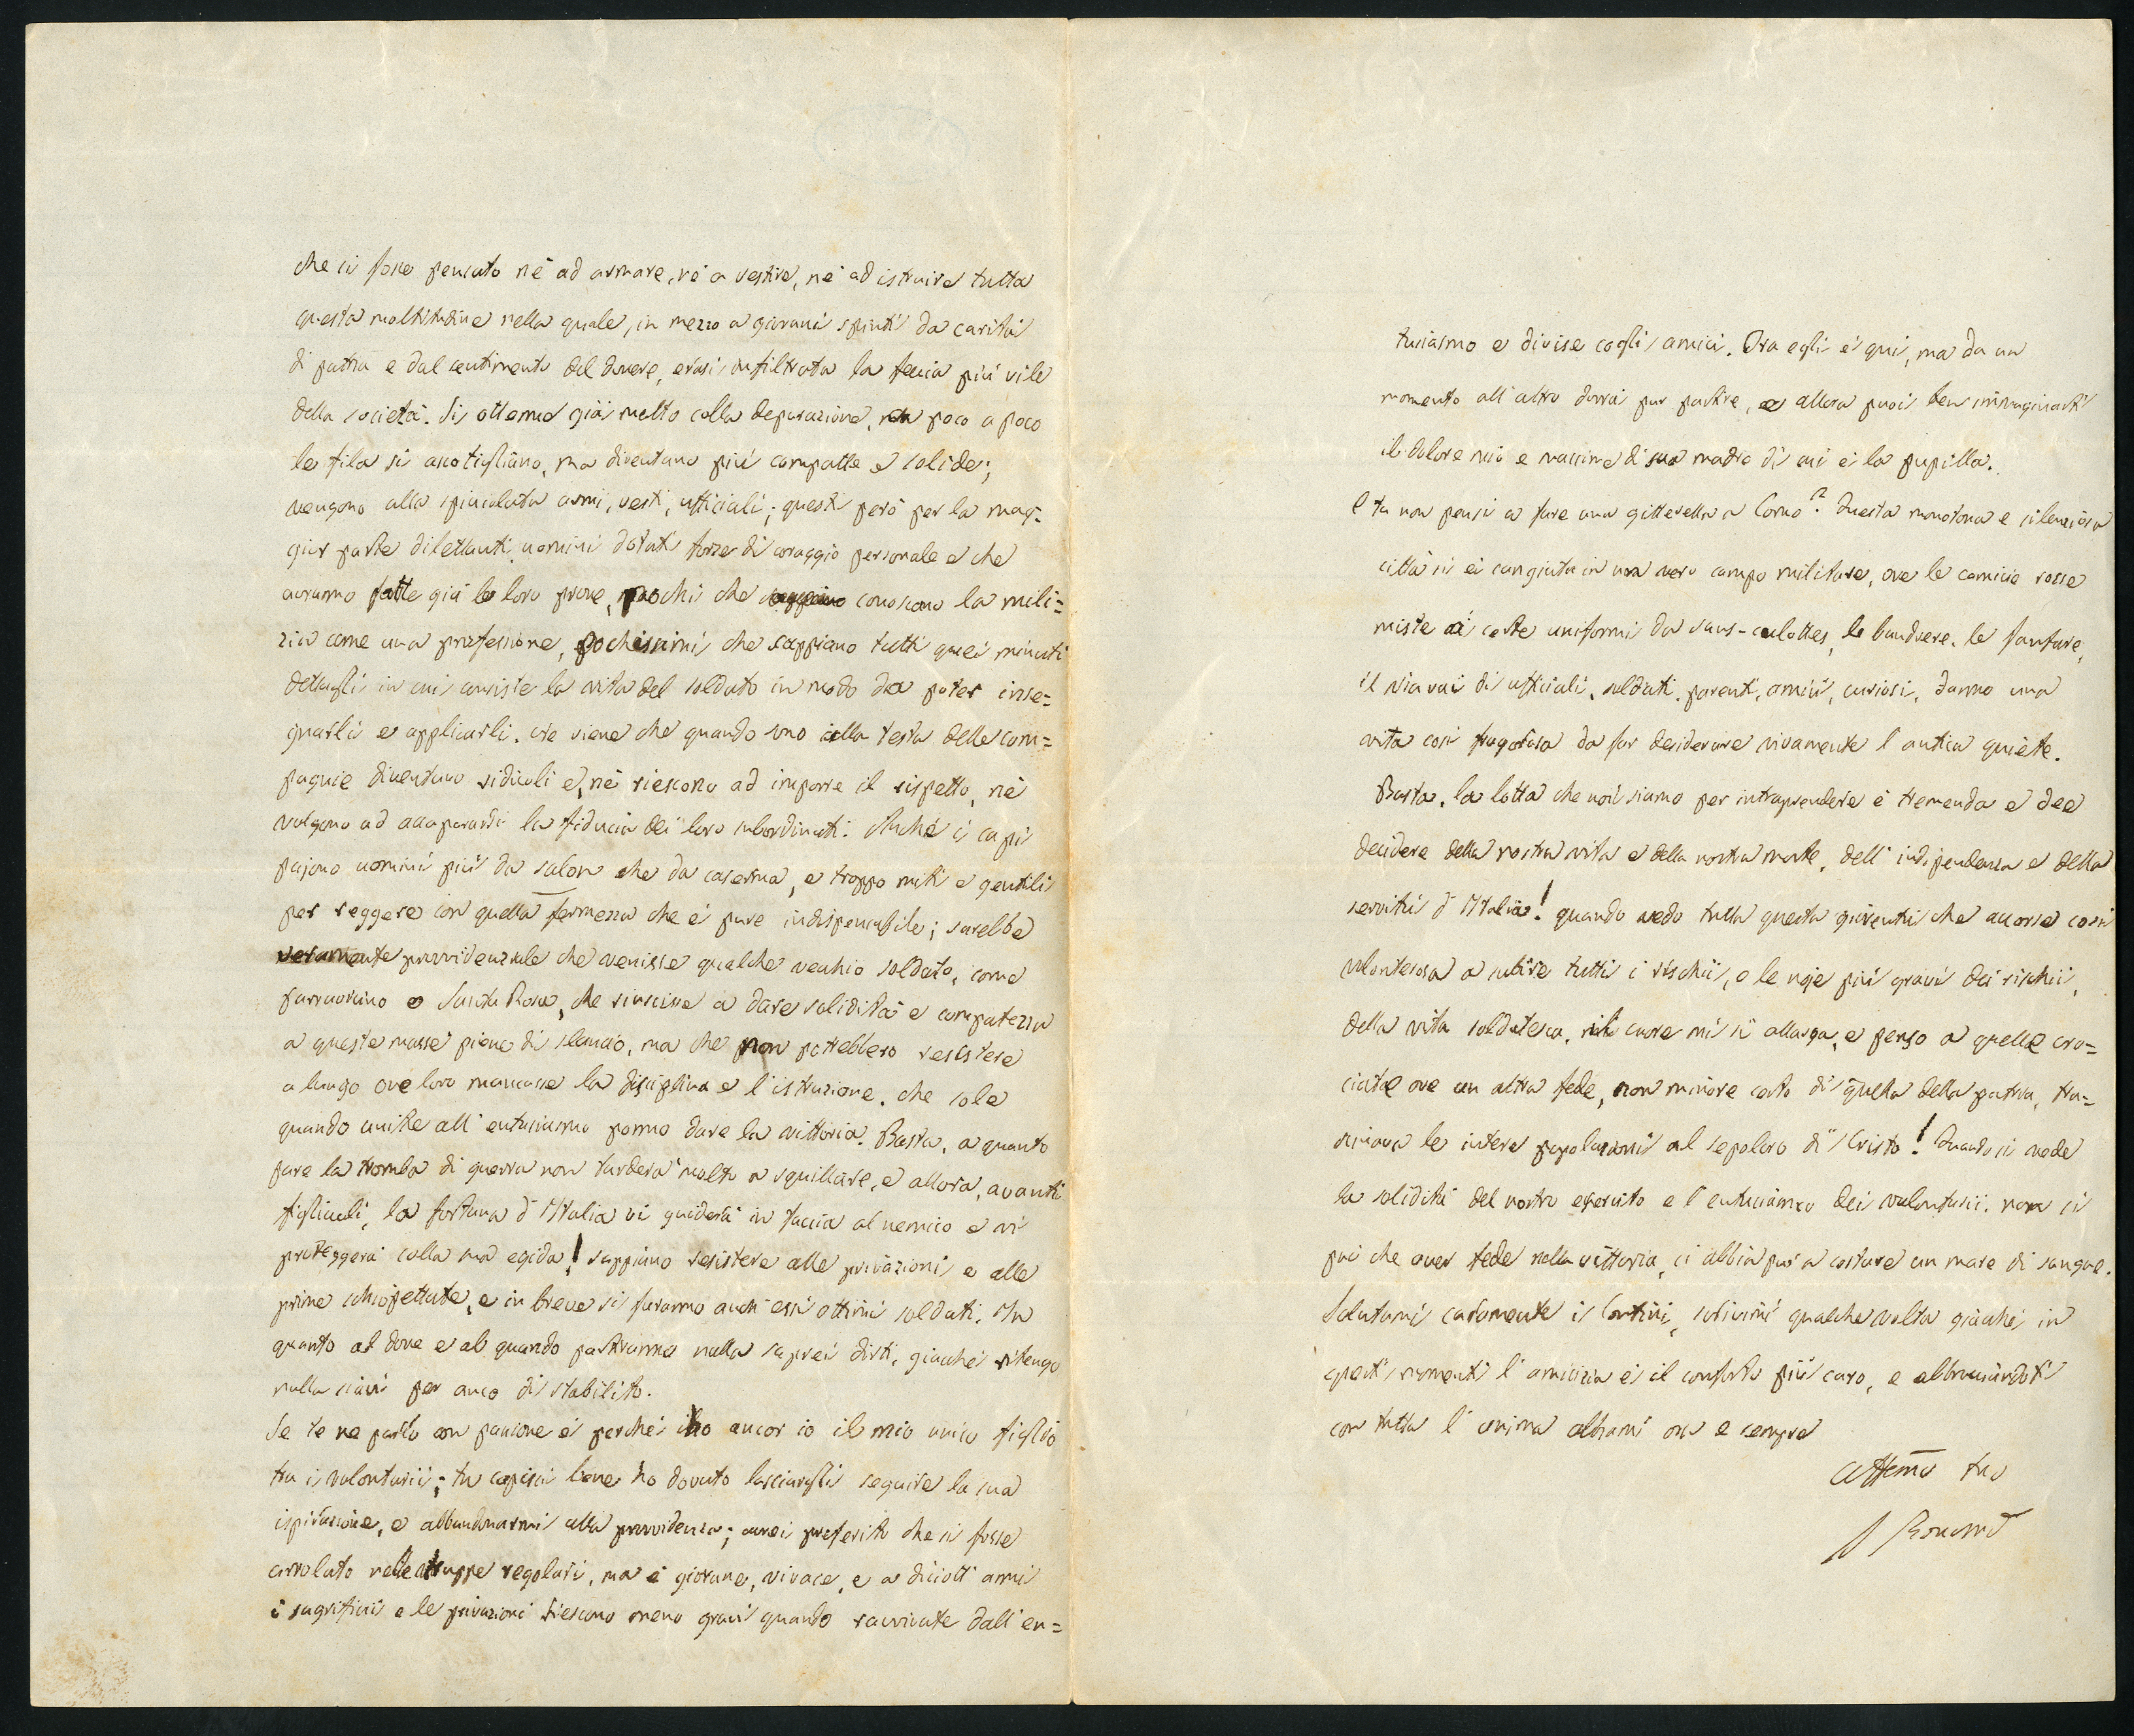 che si fosse pensato nè ad armare, nè a vestire, nè ad istruire tutta
questa moltitudine nella quale, in mezzo a giovani spinti da carità
di patria e dal sentimento del dovere, erasi infiltrata la feccia più vile
della società. Si ottenne già molto colla depurazione, poco a poco
le fila si assotigliano, ma diventano più compatte e solide;
vengono alla spicciolata armi, vesti, ufficiali; questi però per la mag-
gior parte dilettanti, uomini dotati forse di coraggio personale e che
avranno fatte già le loro prove, pochi che conoscono la mili=
zia come una professione, pochissimi che sappiano tutti quei minuti
dettagli in cui consiste la vita del soldato in modo da poter inse=
gnarli e applicarli. Ne viene che quando sono alla testa delle com=
pagnie diventano ridicoli e, nè riescono ad imporre il rispetto, nè
valgono ad accaparrarsi la fiducia dei loro subordinati. Anche i capi
pajono uomini più da salon che da caserma, e troppo miti e gentili
per reggere con quella fermezza che è pure indispensabile; sarebbe
veramente provvidenziale che venisse qualche vecchio soldato, come
Santa Rosa, che riuscisse a dare solidità e compatezza
a queste masse piene di slancio, ma che non potrebbero resistere
a lungo ove loro mancasse la disciplina e l'istruzione. che sole
quando unite all'entusiasmo ponno dare la vittoria. Basta, a quanto
pare la tromba di guerra non tarderà molto a squillare, e allora, avanti
figliuoli, la fortuna d'Italia vi guiderà in faccia al nemico e vi
proteggerà colla sua egida! sappiano resistere alle privazioni e alle
prime schioppettate, e in breve si faranno anch'essi ottimi soldati. In
quanto al dove e al quando partiranno nulla saprei dirti, giacchè ritengo
nulla siavi per anco di stabilito.
Se te ne parlo con passione è perchè ho ancor io il mio unico figlio
tra i volontarii; tu capisci bene ho dovuto lasciargli seguire la sua
ispirazione, e abbandonarmi alla provvidenza; avrei preferito che si fosse
arrolato nelle truppe regolari, ma è giovane, vivace, e a diciott'anni
i sagrificii e le privazioni riescono meno gravi quando ravvivate dall'en=
tusiasmo e divise cogli amici. Ora egli è qui, ma da un
momento all'altro dovrà pur partire, e allora puoi ben immaginarti
il dolore mio e massime di sua madre di cui è la pupilla.
E tu non pensi a fare una gitterella a Como? Questa monotona e silenziosa
città si è cangiata in un vero campo militare, ove le camicie rosse
miste a certe uniformi da sans-culottes, le bandiere, le fanfare,
il via vai di ufficiali, soldati, parenti, amici, curiosi, danno una
vita così fragorosa da far desiderare vivamente l'antica quiete.
Basta, la lotta che noi siamo per intraprendere è tremenda e dee
decidere della nostra vita e della nostra morte, dell'indipendenza e della
servitù d'Italia! quando vedo tutta questa gioventù che accorse così
volonterosa a subire tutti i rischii, e le noje più gravi dei rischii,
della vita soldatesca, il cuore mi si allarga, e penso a quelle cro=
ciate ove un altra fede, non minore certo di quella della patria, tra=
scinava le intere popolazioni al sepolcro di Cristo! Quando si vede
la solidità del nostro esercito e l'entusiasmo dei volontarii, non si
può che aver fede nella vittoria, ci abbia pur a costare un mare di sangue.
Salutami caramente i Contini, scrivimi qualche volta giacchè in
questi momenti l'amicizia è il conforto più caro, e abbracciandoti
con tutta l'anima abbiami ora e sempre
Affemo tuo